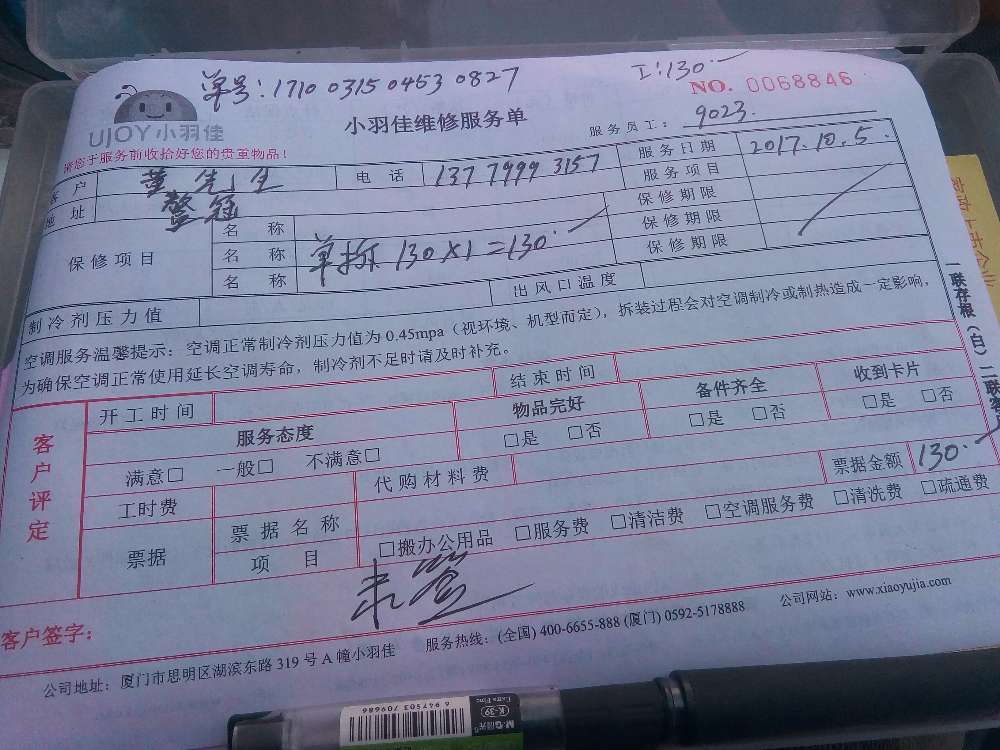 单号：1710 0315 0453 0827
工：130.—
NO. 0068846
UJOY小羽佳
小羽佳维修服务单
服务员工： 9023.
请您于服务前收拾好您的贵重物品！
客户 董先生 电话 137 7999 3157 服务日期 2017.10.5.
地址 鳌冠 服务项目
保修项目 名称 保修期限
名称 单拆 130×1=130.— 保修期限
名称 保修期限
制冷剂压力值 出风口温度
空调服务温馨提示：空调正常制冷剂压力值为 0.45mpa（视环境、机型而定），拆装过程会对空调制冷或制热造成一定影响，
为确保空调正常使用延长空调寿命，制冷剂不足时请及时补充。
一联存根（白） 二联客户
客户评定 开工时间 结束时间
服务态度 物品完好 备件齐全 收到卡片
满意□ 一般□ 不满意□ □是 □否 □是 □否 □是 □否
工时费 代购材料费 票据金额 130.—
票据 票据名称
项目 □搬办公用品 □服务费 □清洁费 □空调服务费 □清洗费 □疏通费
客户签字： 未签
公司地址：厦门市思明区湖滨东路 319 号 A 幢小羽佳 服务热线：(全国) 400-6655-888 (厦门) 0592-5178888 公司网站：www.xiaoyujia.com
6 947503 709686
M&G晨光
K-39
Extra Fine